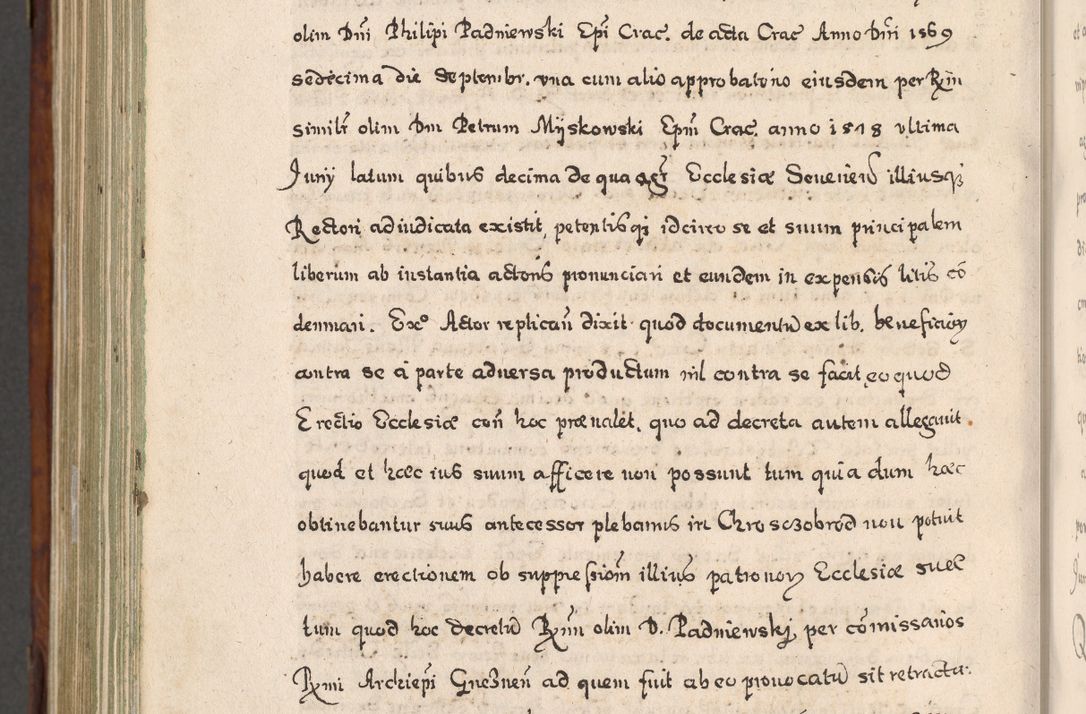 olim Dnī Philipi Padniewski Epī Crac. de acta Crac Anno Dnī 1569
sedecima die Septembr. vna cum alio approbatorio eiusdem per Rm̄
similr̄ olim Dm̄ Petrum Myskowski Epm̄ Crac. anno 1578 vltima
Juny latum quibus decima de qua agr̄ Ecclesiæ Seuerien̄ illiusq́3
Rectori adiudicata existit, petentisq3 idcirco se et suum principalem
liberum ab instantia actoris pronunciari et eundem in expensis litis cō
demnari. Exo Actor replican̄ dixit quod documentū ex lib. beneficior̄
contra se a parte aduersa productum nil contra se facit, eo quod
Erectio Ecclesiæ con̄ hoc præualet, quo ad decreta autem allegauit
quod et hæc ius suum afficere non possunt tum quia dum hæc
obtinebantur suus antecessor plebanus in Chrosczobrod non potuit
habere erectionem ob suppressiom̄ illius patronor̄ Ecclesiæ suæ
tum quod hoc decretū Rm̄ olim D. Padniewskj, per cōmissarios
Rmi Archiepī Gneznen̄ ad quem fuit ab eo prouocatū sit retracta.